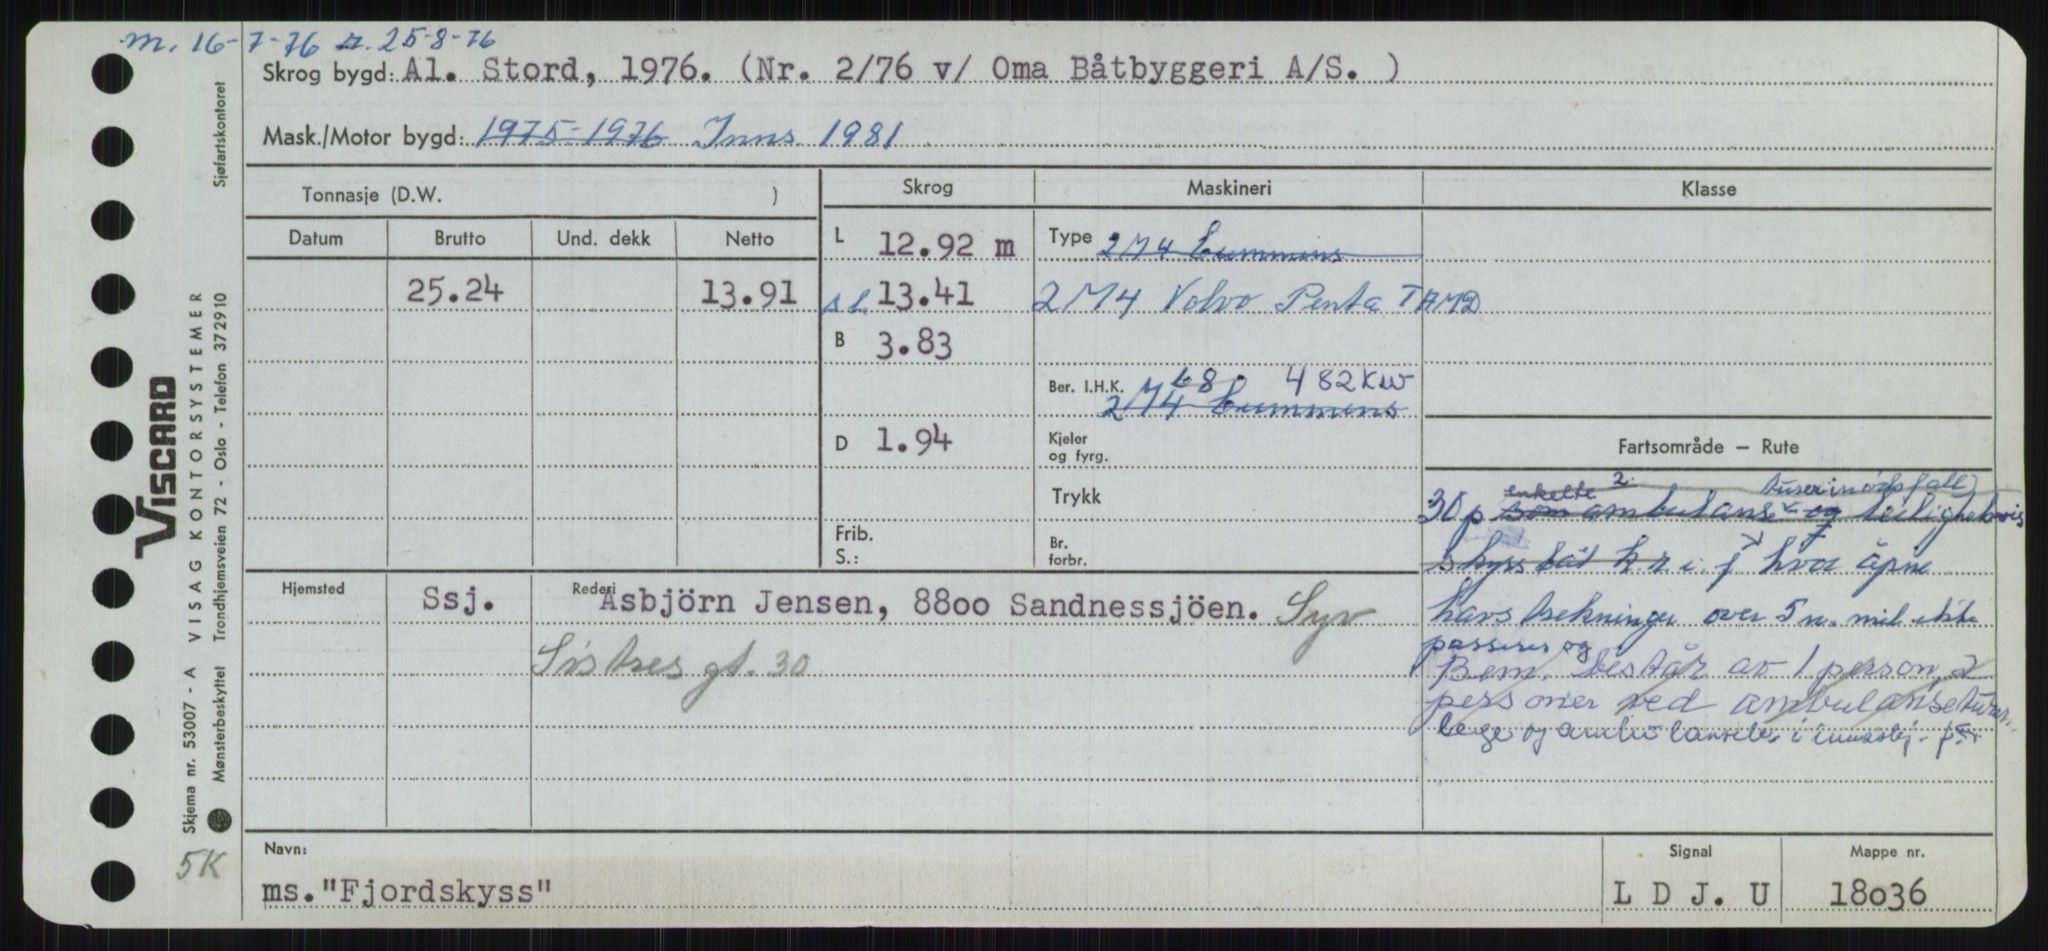 m. 16-7-76 25-8-76
Skrog bygd: Al. Stord, 1976. (Nr. 2/76 v/ Oma Båtbyggeri A/S. )
Mask./Motor bygd: 1975-1976 Inns. 1981
Tonnasje (D.W. )
Skrog
Maskineri
Klasse
Datum
Brutto
Und. dekk
Netto
L 12.92 m
Type 2M4 Cummins
25.24
13.91
s.l. 13.41
2M4 Volvo Penta TAMD
B 3.83
Ber. I.H.K. 68. 482 KW
2M4 Cummins
D 1.94
Kjeler
og fyrg.
Trykk
Frib.
S.:
Br.
forbr.
Fartsområde – Rute
enkelte 2.
30 p som ambulanse og leilighetsvis
skyssbåt k r. i. f hvor åpne
havstrekninger over 5 n. mil ikke
passeres og
Bem. består av 1 person, 2
personer ved ambulanseturer.
lege og
Hjemsted
Ssj.
Rederi
Asbjörn Jensen, 88oo Sandnessjöen. Syv
Sistres gt. 30
Navn:
ms. "Fjordskyss"
Signal
L D J. U
Mappe nr.
18o36
Sjøfartskontoret
VISCARD
VISAG KONTORSYSTEMER
Trondhjemsveien 72 - Oslo - Telefon 372910
Skjema nr. 53007 - A
Mønsterbeskyttet
5K